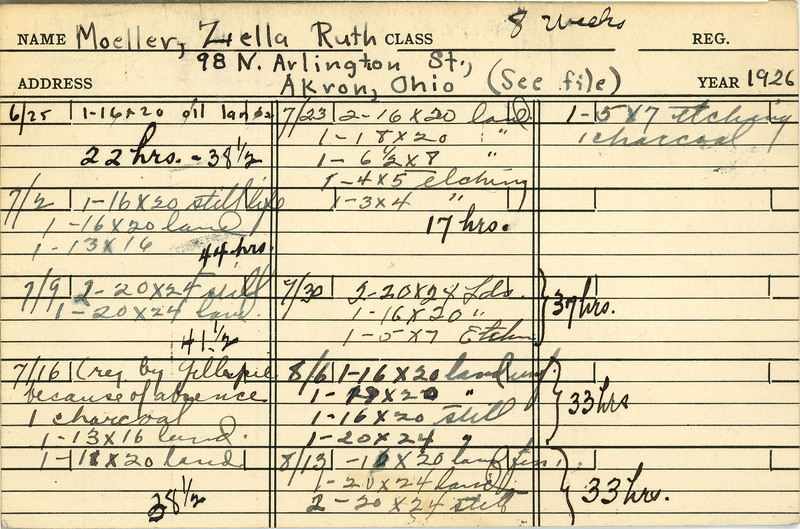 8 weeks
NAME Moeller, Zella Ruth CLASS REG.
98 N. Arlington St.,
ADDRESS Akron, Ohio (See file) YEAR 1926
6/25 1-16x20 oil
22 hrs. - 38 1/2
7/2 1-16x20 still life
1-16x20 land
1-13x16
44 hrs.
7/9 2-20x24 still
1-20x24 land.
41 1/2
7/16 (reg by Gillespie
because of absence
1 charcoal
1-13x16 land.
1-18x20 land
38 1/2
7/23 2-16x20 land.
1-18x20 "
1-6 1/2x8 "
1-4x5 etching
1-3x4 "
17 hrs.
7/30 2-20x24 Lds.
1-16x20 "
1-5x7
37 hrs.
8/6 1-16x20 land
1-18x20 "
1-16x20 still
1-20x24 "
33 hrs
8/13 -16x20 land
1-20x24 land
2-20x24 still
33 hrs.
1-5x7 etching
1 charcoal